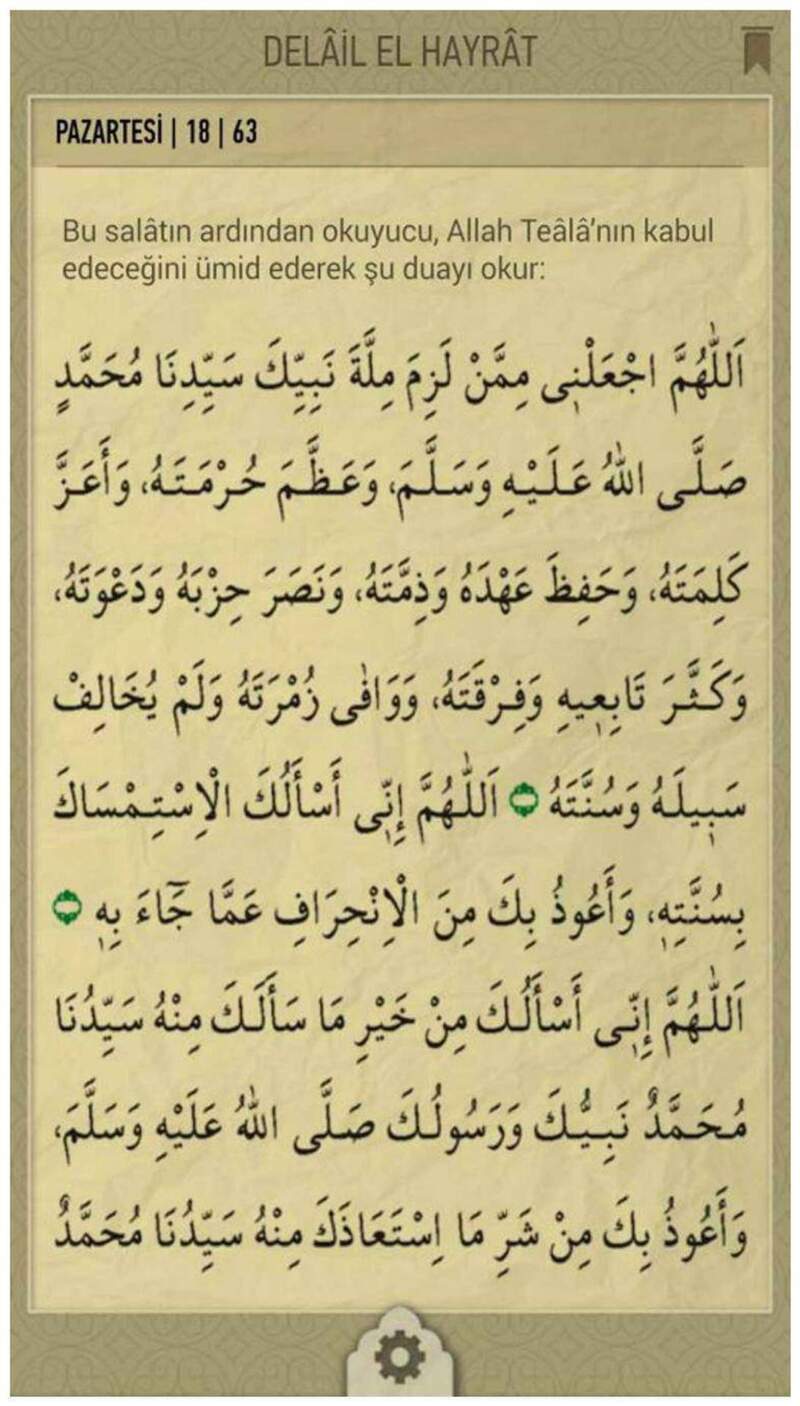 DELÂİL EL HAYRÂT
PAZARTESİ | 18 | 63
Bu salâtın ardından okuyucu, Allah Teâlâ’nın kabul
edeceğini ümid ederek şu duayı okur:
اَللّٰهُمَّ اجْعَلْنٖى مِمَّنْ لَزِمَ مِلَّةَ نَبِيِّكَ سَيِّدِنَا مُحَمَّدٍ
صَلَّى اللّٰهُ عَلَيْهِ وَسَلَّمَ، وَعَظَّمَ حُرْمَتَهُ، وَأَعَزَّ
كَلِمَتَهُ، وَحَفِظَ عَهْدَهُ وَذِمَّتَهُ، وَنَصَرَ حِزْبَهُ وَدَعْوَتَهُ،
وَكَثَّرَ تَابِعٖيهِ وَفِرْقَتَهُ، وَوَافٰى زُمْرَتَهُ وَلَمْ يُخَالِفْ
سَبٖيلَهُ وَسُنَّتَهُ اَللّٰهُمَّ إِنّٖى أَسْأَلُكَ الْاِسْتِمْسَاكَ
بِسُنَّتِهٖ، وَأَعُوذُ بِكَ مِنَ الْاِنْحِرَافِ عَمَّا جَٓاءَ بِهٖ
اَللّٰهُمَّ إِنّٖى أَسْأَلُكَ مِنْ خَيْرِ مَا سَأَلَكَ مِنْهُ سَيِّدُنَا
مُحَمَّدٌ نَبِيُّكَ وَرَسُولُكَ صَلَّى اللّٰهُ عَلَيْهِ وَسَلَّمَ،
وَأَعُوذُ بِكَ مِنْ شَرِّ مَا اِسْتَعَاذَكَ مِنْهُ سَيِّدُنَا مُحَمَّدٌ